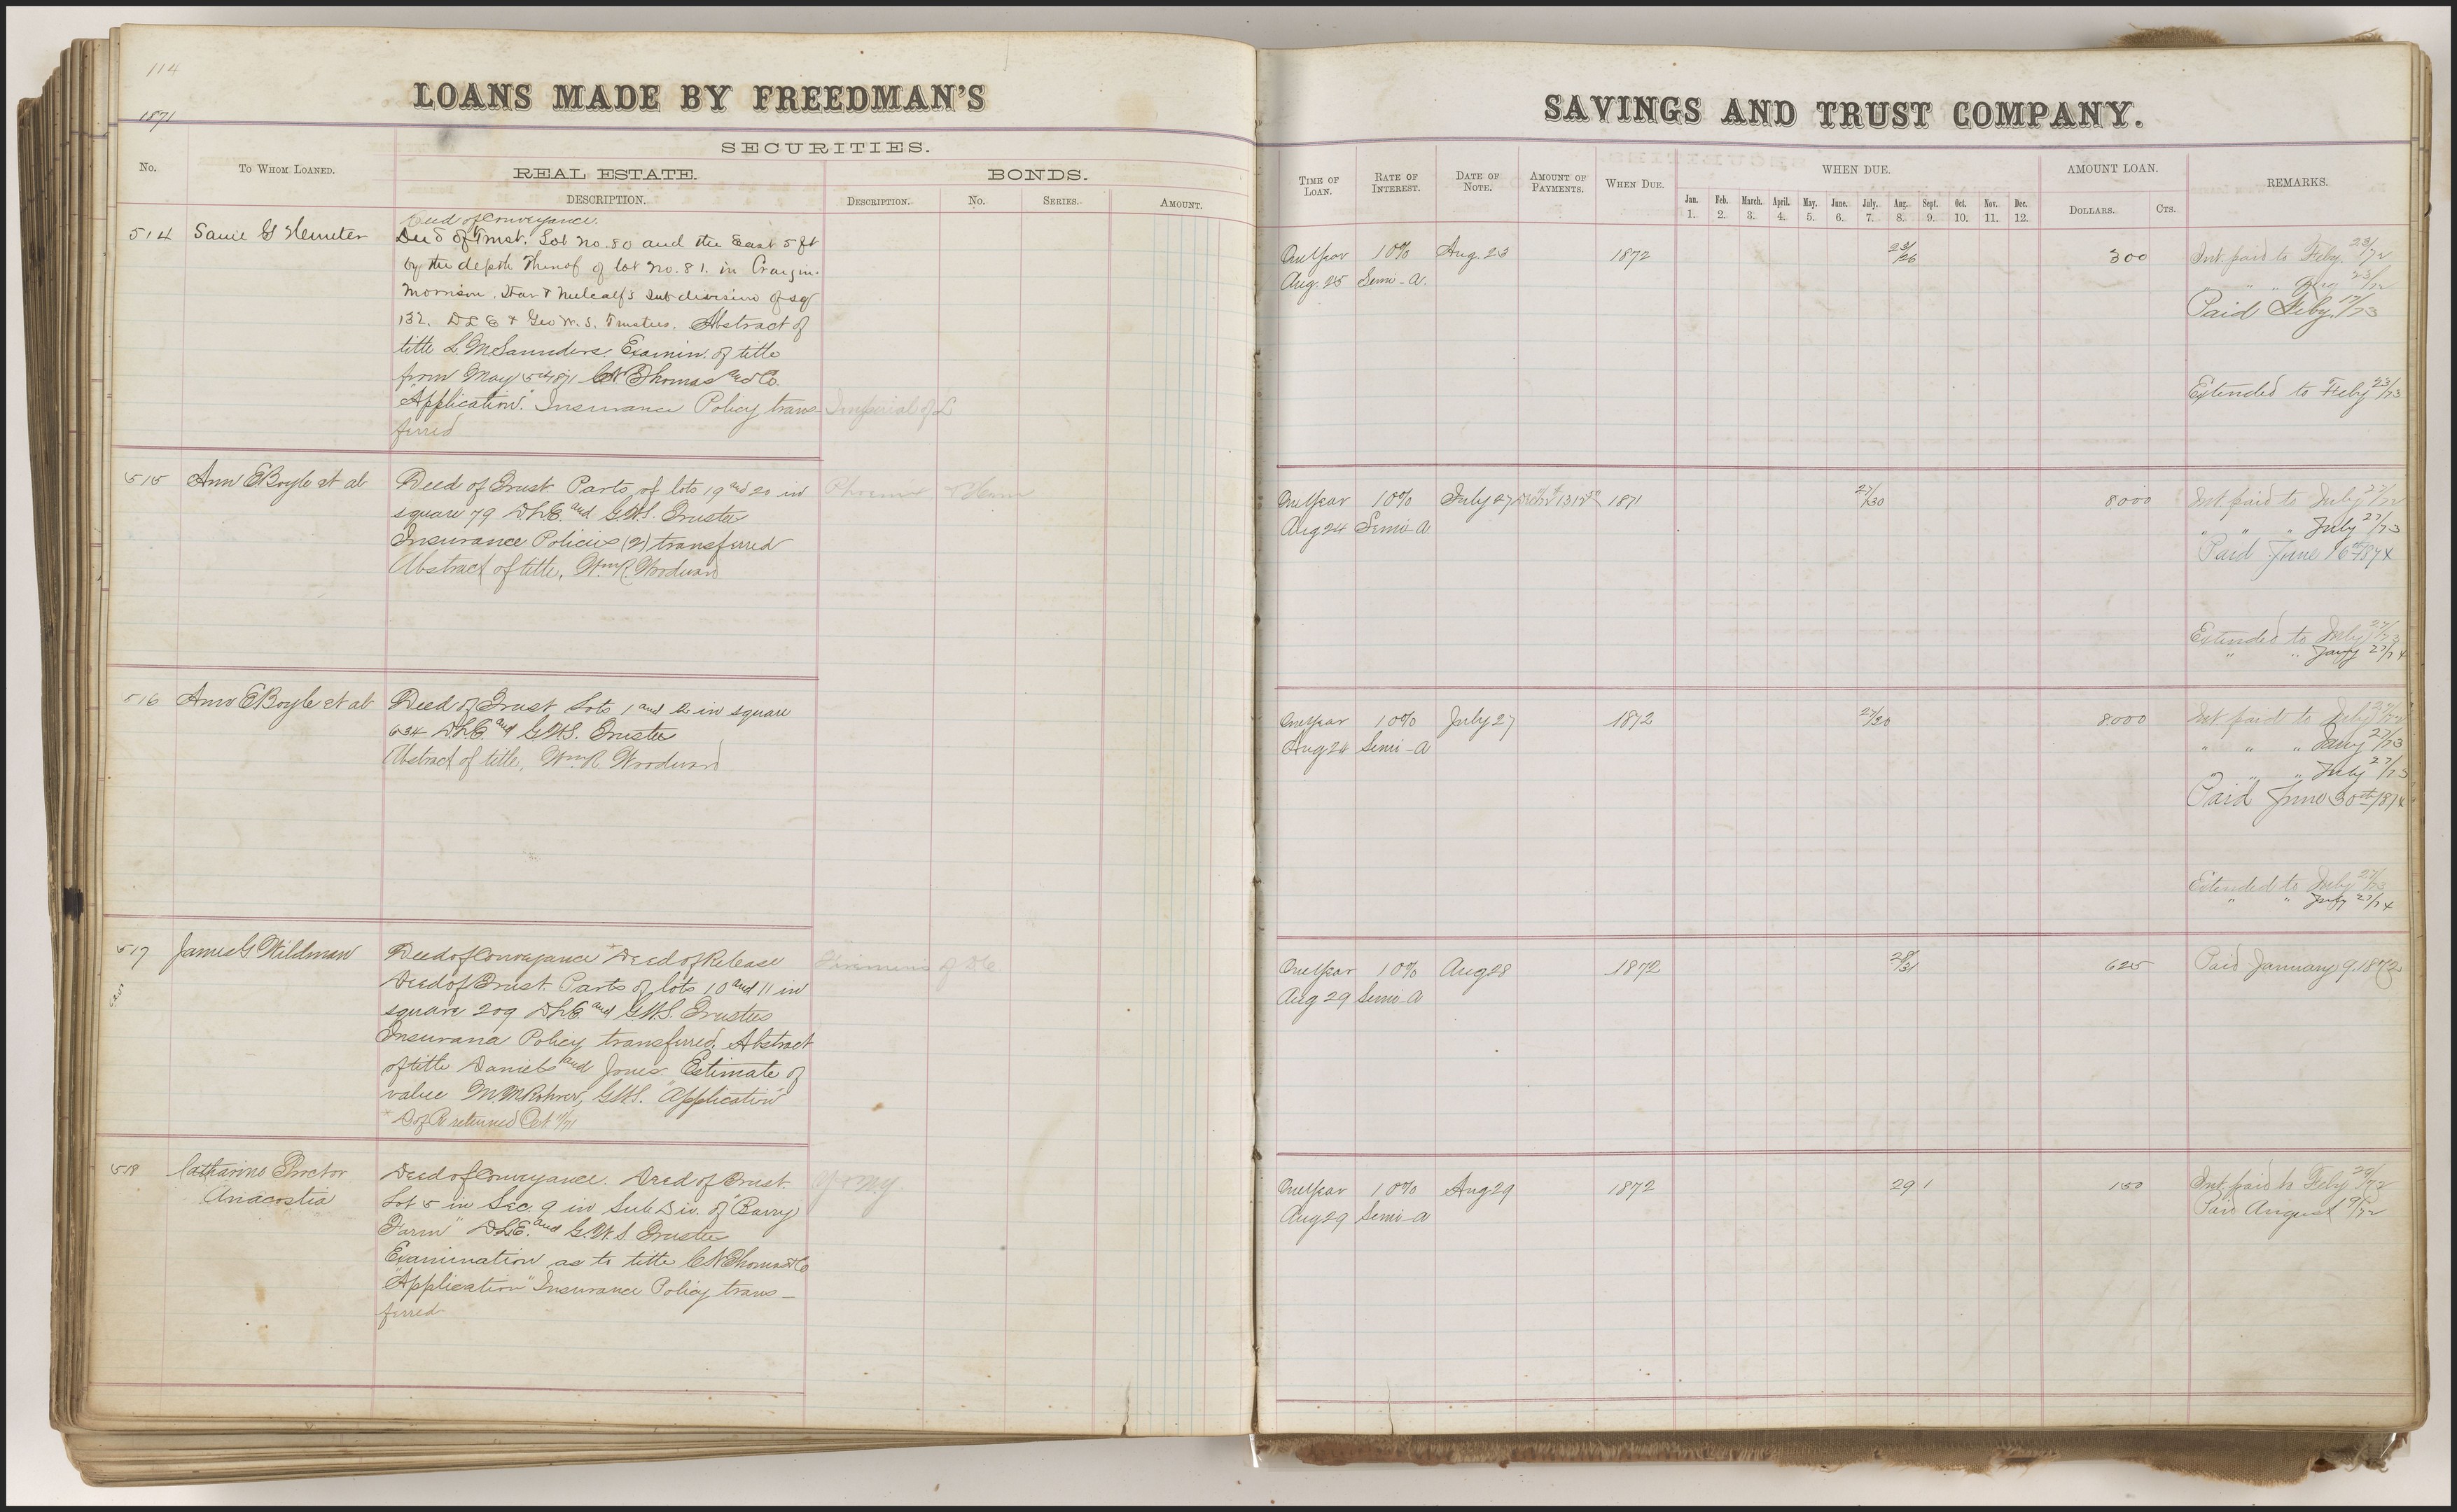 114
LOANS MADE BY FREEDMAN'S
1871
SECURITIES.
No.
To Whom Loaned.
REAL ESTATE.
BONDS.
DESCRIPTION.
Description.
No.
Series.
Amount.
514
Deed of Conveyance.
Deed of Trust. Lot No. 80 and the East 5 ft
by the depth thereof of lot No. 81. in Cragin.
Morrison, Starr & Metcalf's subdivision of sq
132. D L E & Geo W. S. Trustees. Abstract of
title L. M Saunders. Examin. of title
from May 1871 C N Thomas and Co.
"Application." Insurance Policy trans-
ferred
Imperial of L
515
Ann E Boyle et al
Deed of Trust Parts of lots 19 and 20 in
square 79 D.L.E. and G.W.S. Trustee
Insurance Policies (2) transferred
Abstract of title, Wm R. Woodward
Phoenix & Home
516
Ann E Boyle et al
Deed of Trust Lots 1 and 2 in square
634 D.L.E. and G.W.S. Trustee
Abstract of title, Wm R. Woodward
517
James G. Wildman
Deed of Conveyance Deed of Release
Deed of Trust Parts of lots 10 and 11 in
square 209 D.L.E. and G.W.S. Trustees
Insurance Policy transferred. Abstract
of title Daniels and Jones. Estimate of
value M M Rohrer, G.W.S. "Application"
D of R returned Oct 11/71
Firemens of D.C.
518
Catharine Proctor
Anacostia
Deed of Conveyance. Deed of Trust.
Lot 5 in Sec 9 in Sub Div. of "Barry
Farm" D.L.E. and G.W.S Trustee
Examination as to title C N Thomas & Co
"Application" Insurance Policy trans-
ferred
SAVINGS AND TRUST COMPANY.
Time of Loan.
Rate of Interest.
Date of Note.
Amount of Payments.
When Due.
WHEN DUE.
Jan. 1.
Feb. 2.
March. 3.
April. 4.
May. 5.
June. 6.
July. 7.
Aug. 8.
Sept. 9.
Oct. 10.
Nov. 11.
Dec. 12.
AMOUNT LOAN.
Dollars.
Cts.
REMARKS.
One Year 10% Aug. 23 1872 23/26 300 Int. paid to Feby. 23/72
Aug. 25 Semi-A. " " " Aug 23/72
Paid Feby. 17/73
Extended to Feby 23/73
One Year 10% July 27 1871 27/30 8000 Int. paid to July 27/72
Aug 24 Semi A " " " July 27/73
Paid June 16th 1874
Extended to July 27/73
" " 27/74
One Year 10% July 27 1872 27/30 8000 Int. paid to July 27/72
Aug 24 Semi-A " " " Jany 27/73
" " " July 27/73
Paid June 30th 1874
Extended to July 27/73
" " 27/74
One Year 10% Aug 28 1872 28/31 625 Paid January 9. 1872
Aug 29 Semi-A
One Year 10% Aug 29 1872 29 1 150 Int. paid to Feby 29/72
Aug 29 Semi-A Paid August 19/72